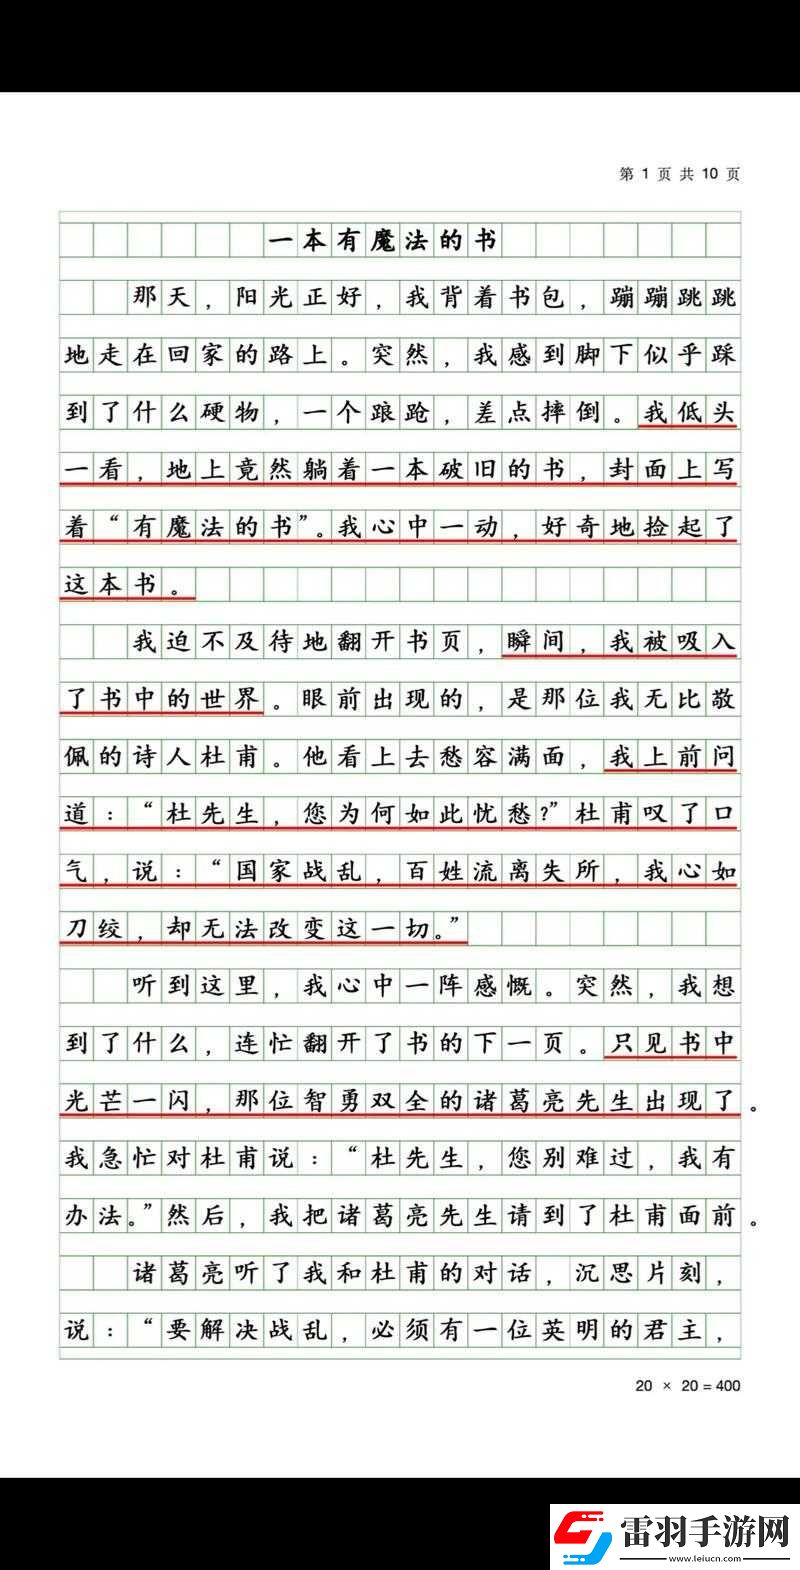 第 1 页 共 10 页
一本有魔法的书
那天，阳光正好，我背着书包，蹦蹦跳跳
地走在回家的路上。突然，我感到脚下似乎踩
到了什么硬物，一个踉跄，差点摔倒。我低头
一看，地上竟然躺着一本破旧的书，封面上写
着“有魔法的书”。我心中一动，好奇地捡起了
这本书。
我迫不及待地翻开书页，瞬间，我被吸入
了书中的世界。眼前出现的，是那位我无比敬
佩的诗人杜甫。他看上去愁容满面，我上前问
道：“杜先生，您为何如此忧愁？”杜甫叹了口
气，说：“国家战乱，百姓流离失所，我心如
刀绞，却无法改变这一切。”
听到这里，我心中一阵感慨。突然，我想
到了什么，连忙翻开了书的下一页。只见书中
光芒一闪，那位智勇双全的诸葛亮先生出现了。
我急忙对杜甫说：“杜先生，您别难过，我有
办法。”然后，我把诸葛亮先生请到了杜甫面前。
诸葛亮听了我和杜甫的对话，沉思片刻，
说：“要解决战乱，必须有一位英明的君主，
20 × 20 = 400
雷羽手游网
www.leiucn.com